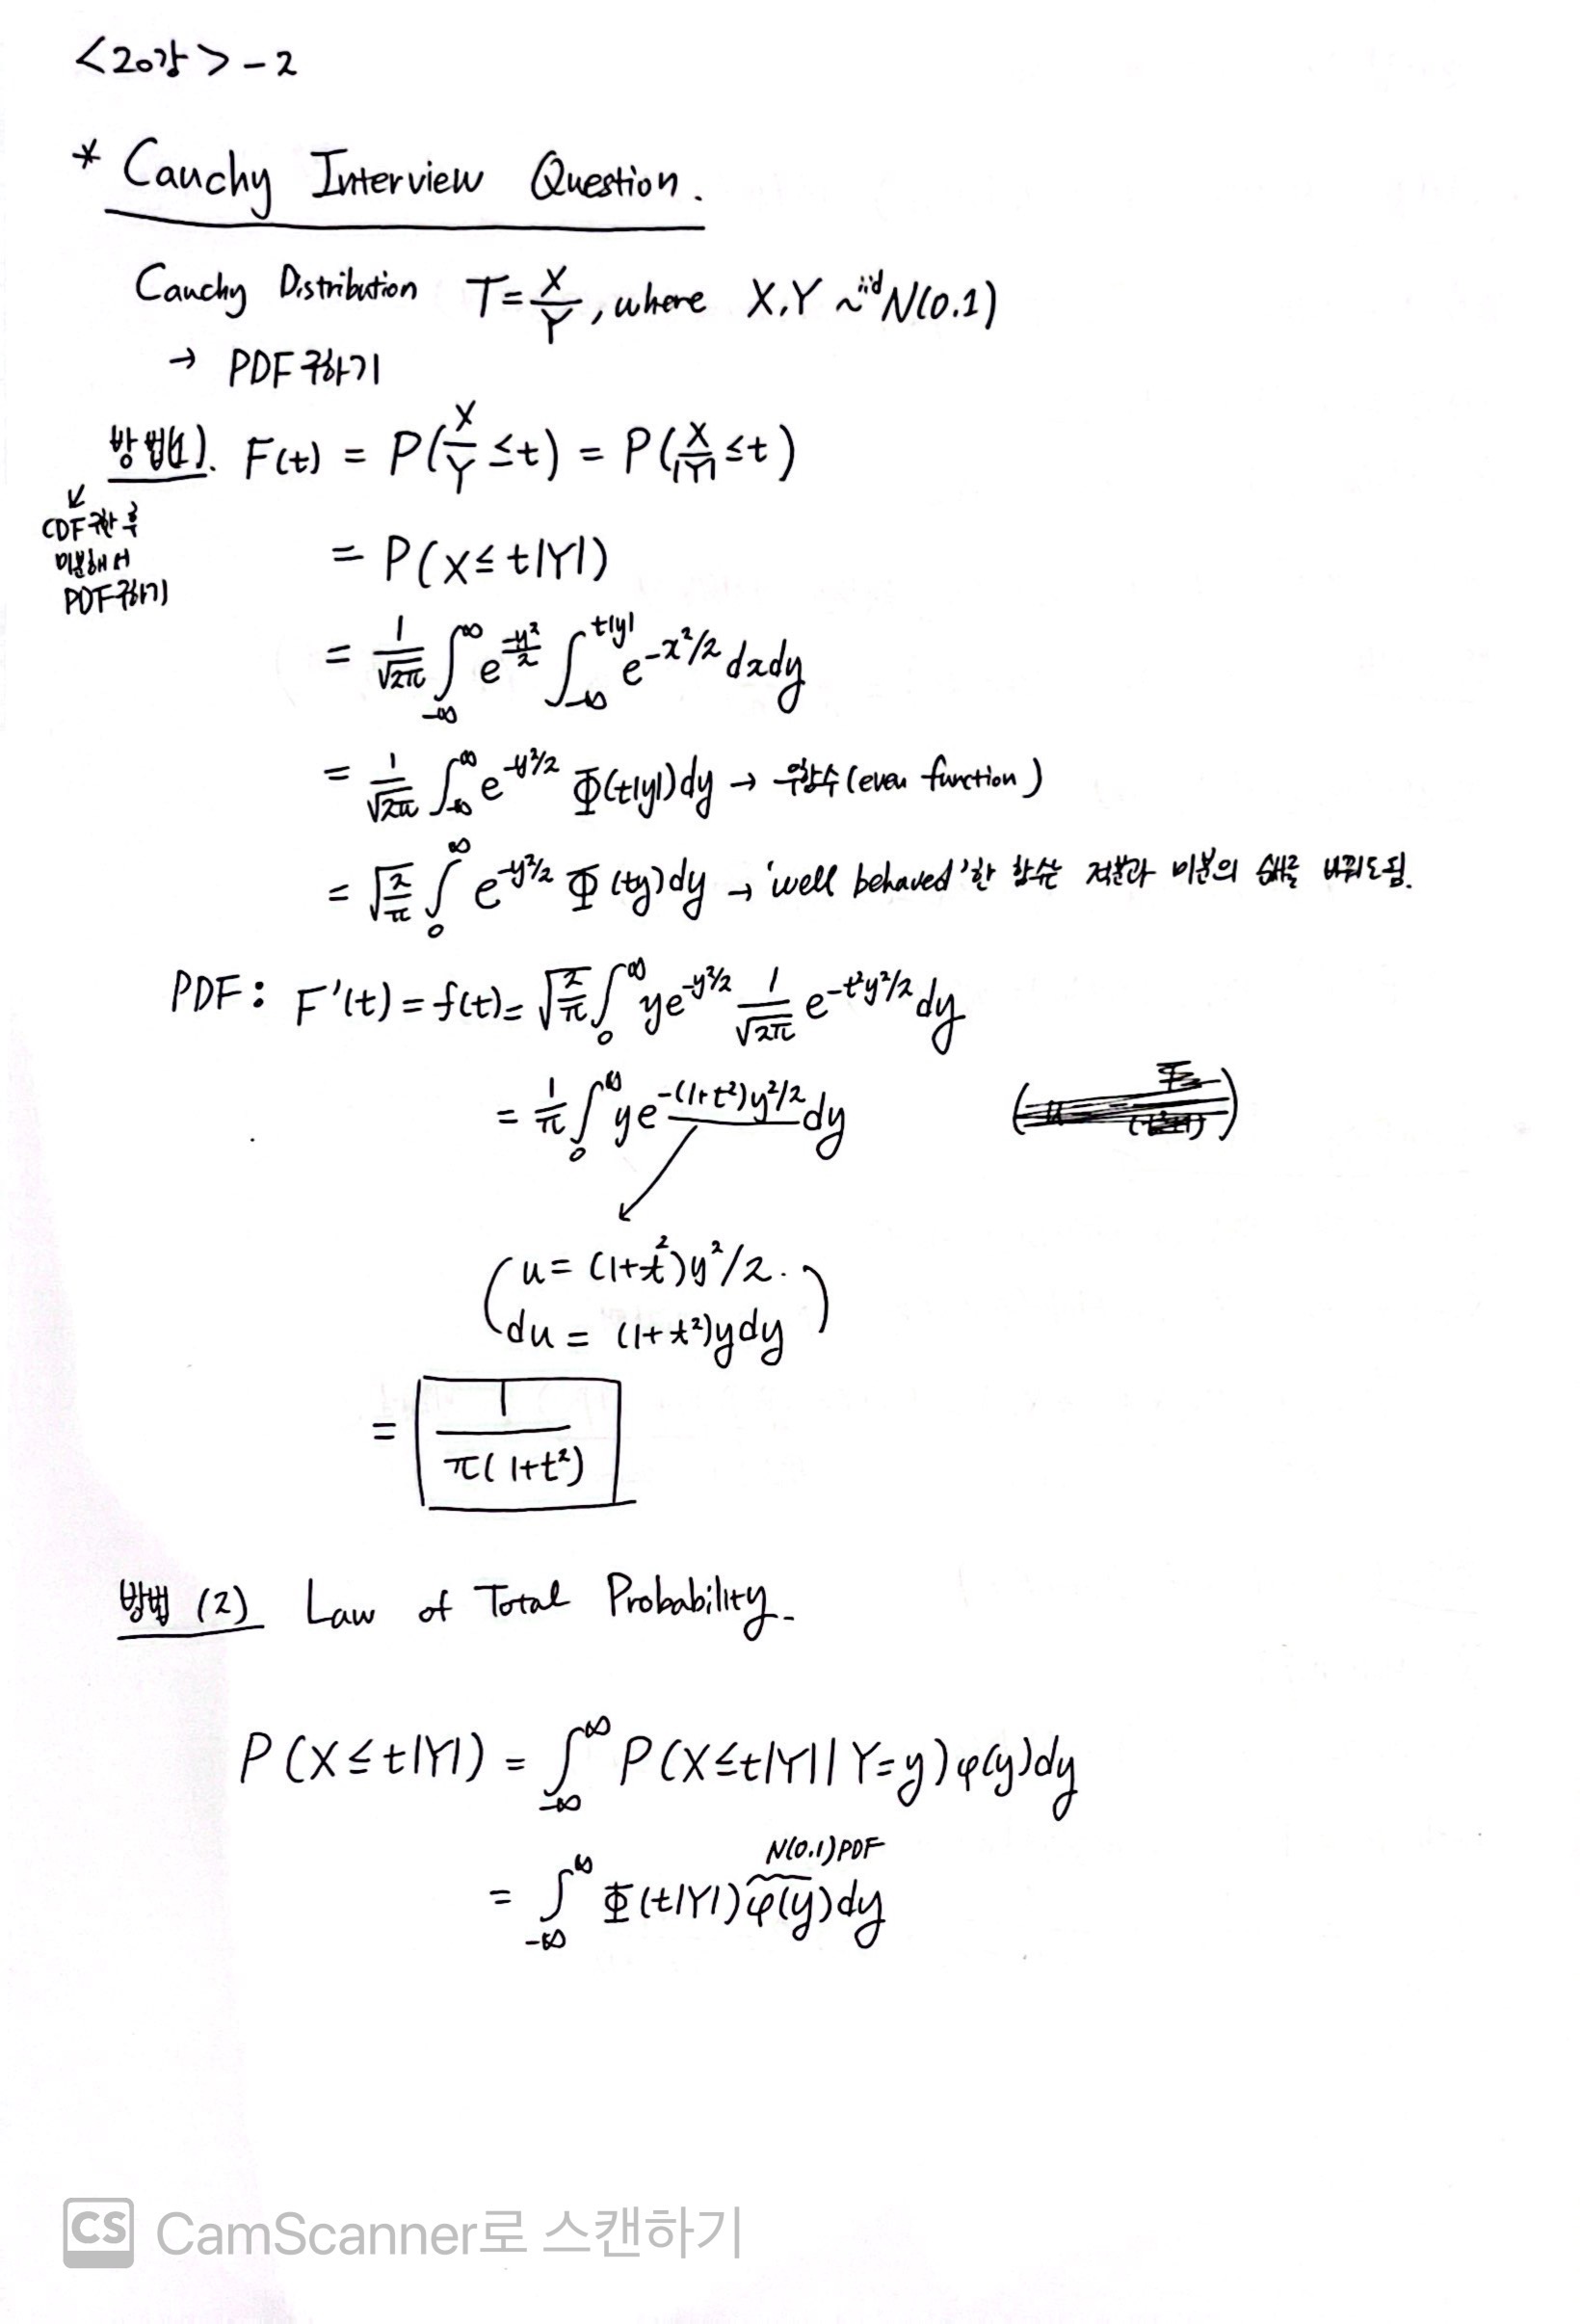 <20강> - 2
* Cauchy Interview Question.
Cauchy Distribution T = X/Y, where X, Y ~iid N(0.1)
→ PDF 구하기
방법(1). F(t) = P(X/Y ≤ t) = P(X/|Y| ≤ t)
↙
CDF 구한 후
미분해서
PDF 구하기
= P(X ≤ t|Y|)
= 1/√2π ∫_{-∞}^{∞} e^{-y²/2} ∫_{-∞}^{t|y|} e^{-x²/2} dxdy
= 1/√2π ∫_{-∞}^{∞} e^{-y²/2} Φ(t|y|)dy → 우함수 (even function)
= √(2/π) ∫_0^∞ e^{-y²/2} Φ(ty)dy → 'well behaved'한 함수는 적분과 미분의 순서를 바꿔도 됨.
PDF: F'(t) = f(t) = √(2/π) ∫_0^∞ ye^{-y²/2} 1/√2π e^{-t²y²/2} dy
= 1/π ∫_0^∞ ye^{-(1+t²)y²/2} dy
(u = (1+t²)y²/2.
du = (1+t²)ydy)
= 1/π(1+t²)
방법 (2) Law of Total Probability.
P(X ≤ t|Y|) = ∫_{-∞}^{∞} P(X ≤ t|Y| | Y=y) φ(y)dy
N(0.1) PDF
= ∫_{-∞}^{∞} Φ(t|Y|) φ(y)dy
CS CamScanner로 스캔하기